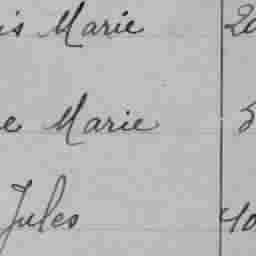 is Marie 20
e Marie 5
Jules 40